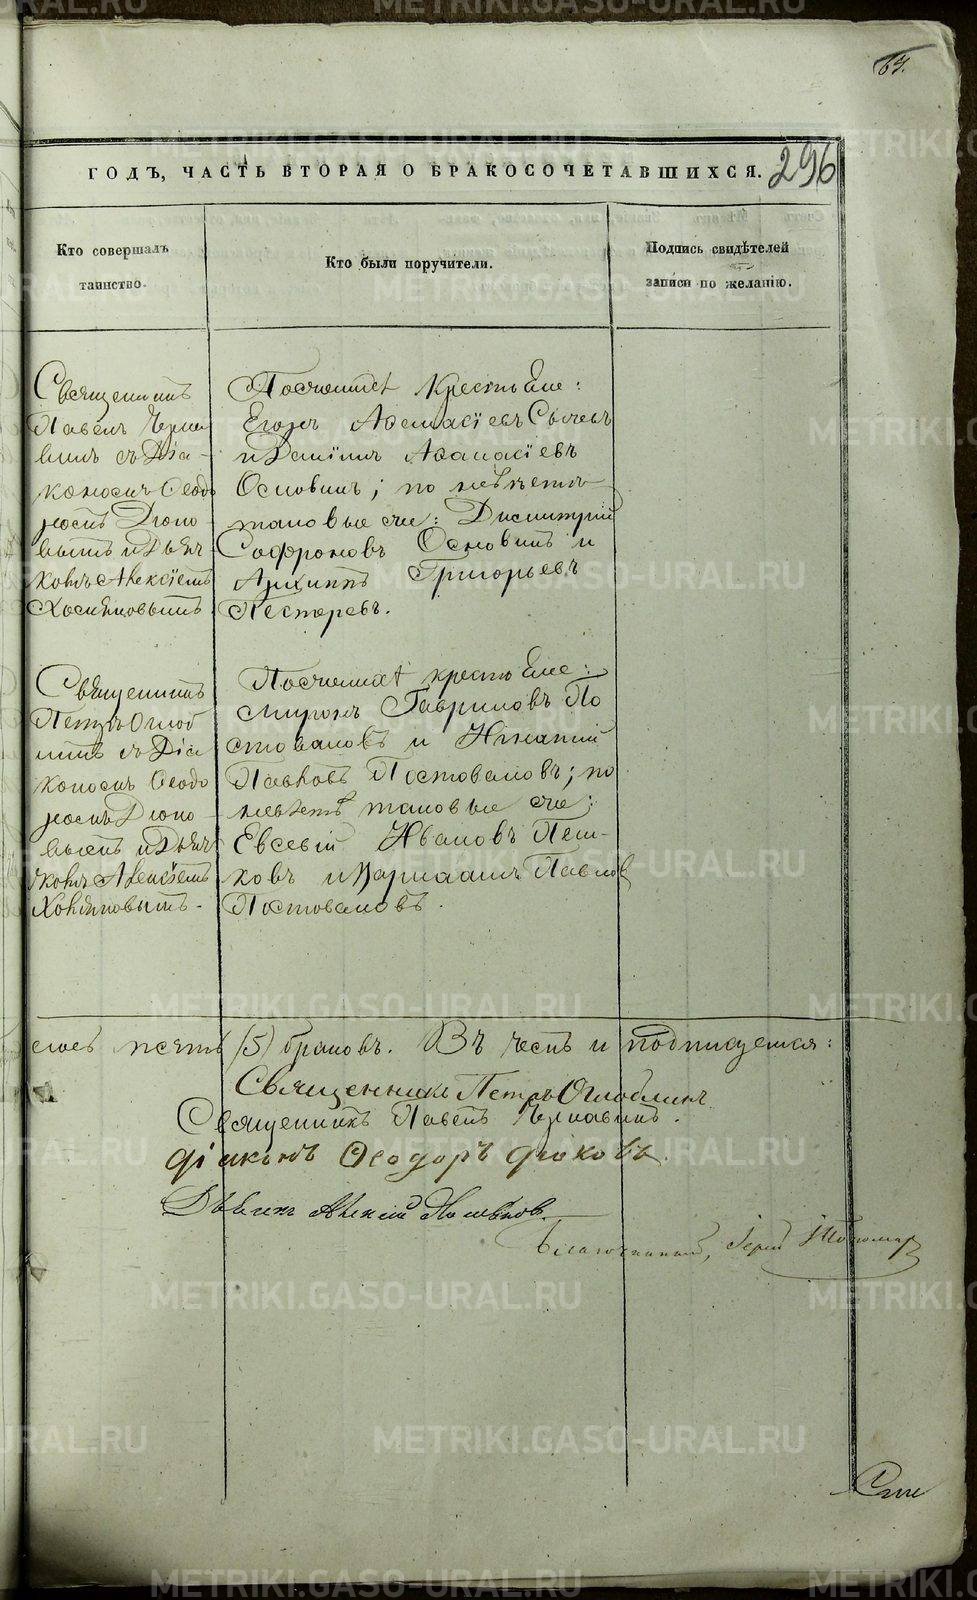 64.
ГОДЪ, ЧАСТЬ ВТОРАЯ О БРАКОСОЧЕТАВШИХСЯ. 296
Кто совершалъ
таинство.
Кто были поручители.
Подпись свидѣтелей
записи по желанію.
Священникъ
Павелъ Черна
винъ съ Діа-
кономъ Ѳеодо
ромъ Дюко-
вымъ и Дьяч
комъ Алексѣемъ
По женихѣ крестьяне:
Егоръ Аѳанасіевъ Сычевъ
и Данiилъ Аѳанасіевъ
Основинъ; по невѣстѣ
таковые же: Дмитрій
Софроновъ Основинъ и
Архиппъ Григорьевъ
Пестеревъ.
Священникъ
Петръ Оглоб
линъ съ Діа
кономъ Ѳеодо
ромъ Дюко-
вымъ и Дьяч
комъ Алексѣемъ
По женихѣ крестьяне:
Миронъ Гавриловъ По
стоваловъ и Игнатий
Павловъ Постоваловъ; по
невѣстѣ таковые же:
Евсевій Ивановъ Пеш-
ковъ и Варлаамъ Павлов
Постоваловъ.
пять (5) браковъ. Въ чемъ и подписуемся:
Священникъ Петръ Оглоблинъ
Священникъ Павелъ Чернавинъ.
Діаконъ Ѳеодоръ Дюковъ.
Дьячекъ Алексій
Благочинный, Іерей
METRIKI.GASO-URAL.RU